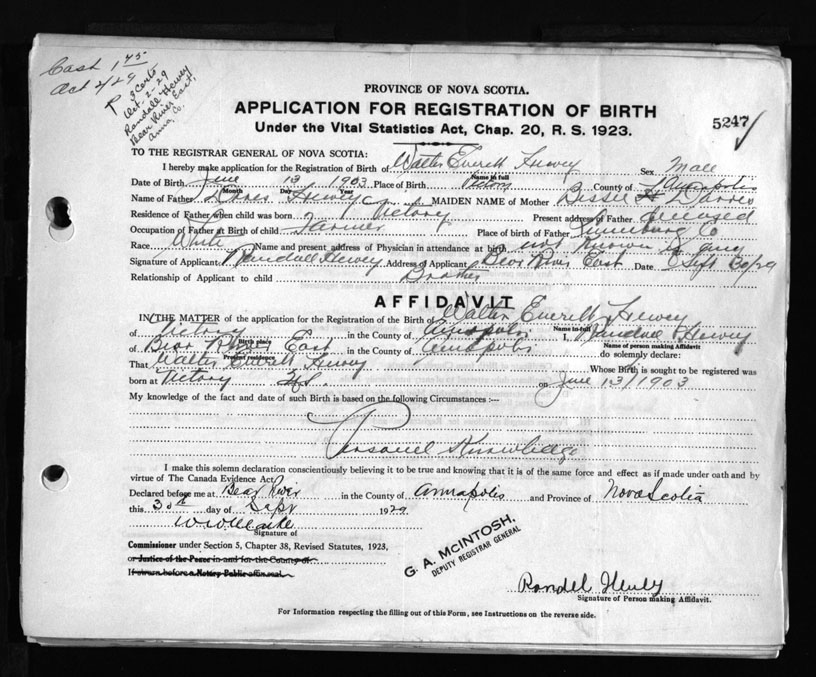 Cash 1 75
Oct 2/29
R 3 Certs
Oct. 2-29
Randall Hewey
Bear River East,
Anna. Co.
PROVINCE OF NOVA SCOTIA.
APPLICATION FOR REGISTRATION OF BIRTH
Under the Vital Statistics Act, Chap. 20, R. S. 1923.
5247
TO THE REGISTRAR GENERAL OF NOVA SCOTIA:
I hereby make application for the Registration of Birth of Walter Everett Hewey Sex Male
Name in full
Date of Birth June 13 1903 Place of Birth Victory County of Annapolis
Month Day Year
Name of Father Hewey MAIDEN NAME of Mother Bessie
Residence of Father when child was born Victory Present address of Father deceased
Occupation of Father at Birth of child Farmer Place of birth of Father Lunenburg Co
Race White Name and present address of Physician in attendance at birth not known
Signature of Applicant Randall Hewey Address of Applicant Bear River East Date Sept 30/29
Relationship of Applicant to child Brother
AFFIDAVIT
IN THE MATTER of the application for the Registration of the Birth of Walter Everett Hewey
Name in full
of Victory in the County of Annapolis I, Randall Hewey
Birth place Name of person making Affidavit
of Bear River East in the County of Annapolis do solemnly declare:
Present residence
That Walter Everett Hewey Whose Birth is sought to be registered was
born at Victory N.S. on June 13/1903
My knowledge of the fact and date of such Birth is based on the following Circumstances :—
Personel Knowledge
I make this solemn declaration conscientiously believing it to be true and knowing that it is of the same force and effect as if made under oath and by
virtue of The Canada Evidence Act.
Declared before me at Bear River in the County of Annapolis and Province of Nova Scotia
this 30th day of Sept 1929
Signature of
Commissioner under Section 5, Chapter 38, Revised Statutes, 1923,
or Justice of the Peace in and for the County of
If sworn before a Notary Public affix seal.
G. A. McINTOSH,
DEPUTY REGISTRAR GENERAL
Randel Hewey
Signature of Person making Affidavit.
For Information respecting the filling out of this Form, see Instructions on the reverse side.